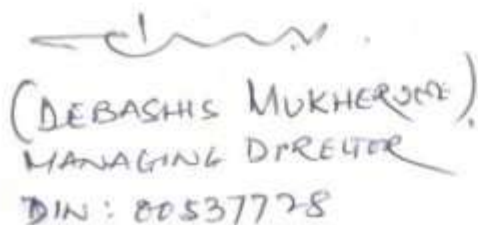 (DEBASHIS MUKHERJEE).
MANAGING DIRECTOR
DIN: 00537728